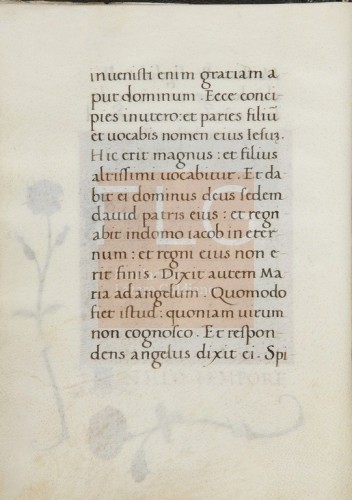 inuenisti enim gratiam a
put dominum . Ecce conci
pies inutero: et paries filiū
et uocabis nomen eius Iesuʒ.
Hic erit magnus : et filius
altissimi uocabitur . Et da
bit ei dominus deus sedem
dauid patris eius : et regn
abit indomo iacob in eter
num : et regni eius non e
rit finis . Dixit autem Ma
ria ad angelum . Quomodo
fiet istud : quoniam uirum
non cognosco . Et respon
dens angelus dixit ei . Spi
FLG